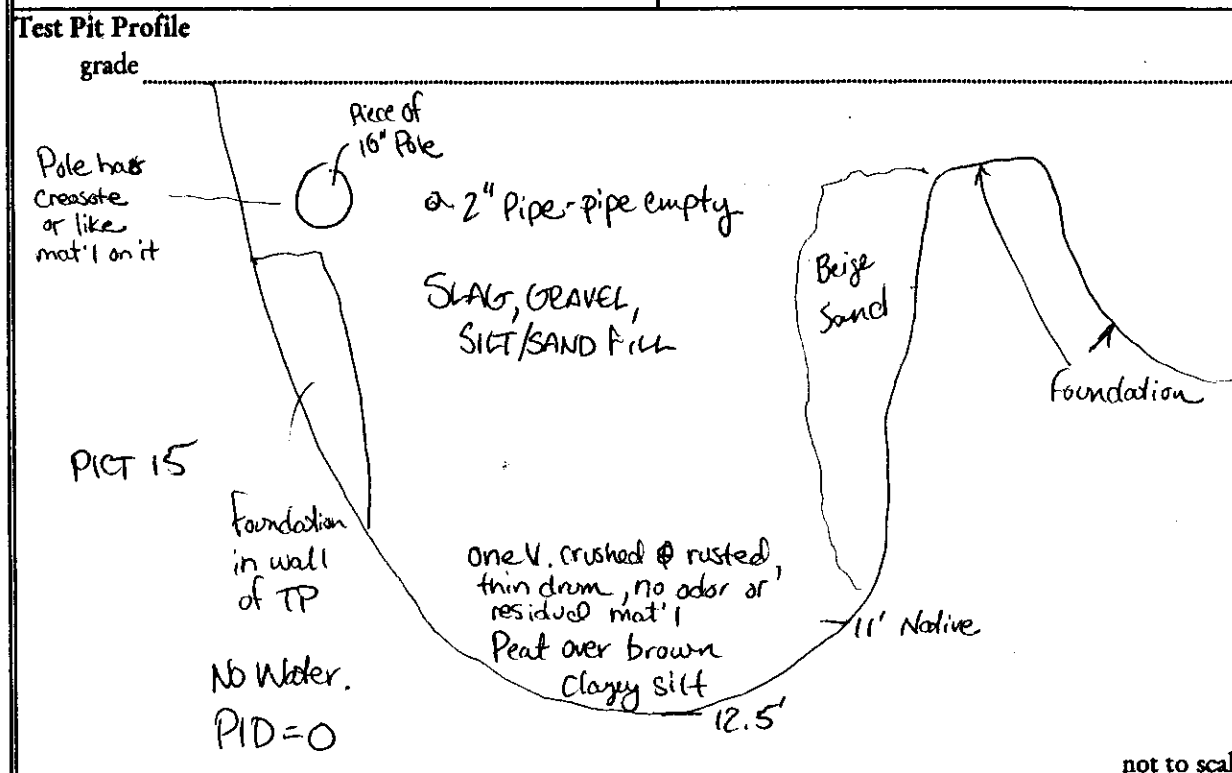 Test Pit Profile
grade
Piece of
16" Pole
Pole has
creasote
or like
mat'l on it
2" Pipe-pipe empty
SLAG, GRAVEL,
SILT/SAND FILL
Beige
Sand
Foundation
PICT 15
Foundation
in wall
of TP
one V. crushed & rusted,
thin drum, no odor or
residual mat'l
Peat over brown
Clayey silt
11' Native
12.5'
No Water.
PID=0
not to scal